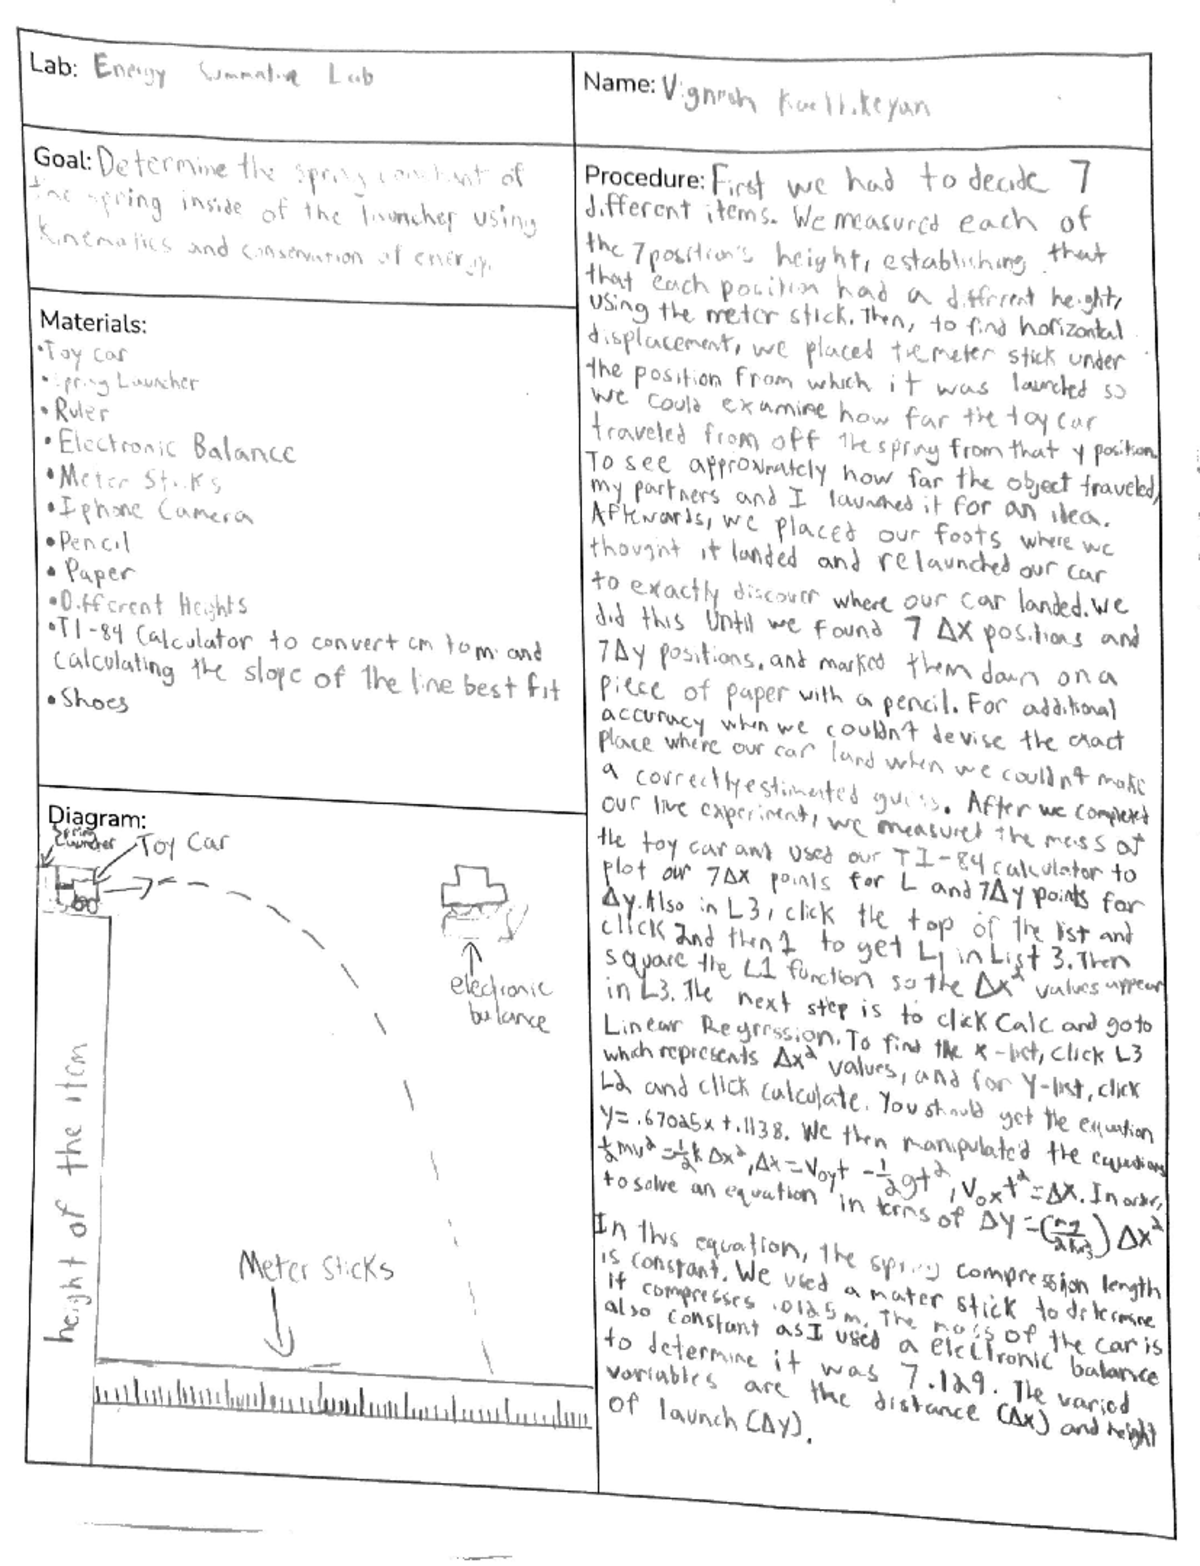 Lab: Energy Summative Lab
Name: Vignesh
Goal: Determine the spring constant of
the spring inside of the launcher using
Kinematics and conservation of energy.
Materials:
•Toy car
•Spring Launcher
• Ruler
• Electronic Balance
• Meter Sticks
• Iphone Camera
• Pencil
• Paper
• Different Heights
•TI-84 Calculator to convert cm to m and
calculating the slope of the line best fit
• Shoes
Diagram:
Spring
Launcher
Toy Car
electronic
balance
height of the item
Meter Sticks
Procedure: First we had to decide 7
different items. We measured each of
the 7 position's height, establishing that
that each position had a different height,
using the meter stick. Then, to find horizontal
displacement, we placed the meter stick under
the position from which it was launched so
we could examine how far the toy car
traveled from off the spring from that y position.
To see approximately how far the object traveled,
my partners and I launched it for an idea.
Afterwards, we placed our foots where we
thought it landed and relaunched our car
to exactly discover where our car landed. We
did this until we found 7 ΔX positions and
7Δy positions, and marked them down on a
piece of paper with a pencil. For additional
accuracy when we couldn't devise the exact
place where our car land when we couldn't make
a correctly estimated guess. After we completed
our live experiment, we measured the mass of
the toy car and used our TI-84 calculator to
plot our 7Δx points for L and 7Δy points for
Δy. Also in L3, click the top of the list and
click 2nd then 1 to get L1 in List 3. Then
square the L1 function so the Δx² values appear
in L3. The next step is to click Calc and go to
Linear Regression. To find the x-list, click L3
which represents Δx² values, and for Y-list, click
L2 and click calculate. You should get the equation
y=.67025x+.1138. We then manipulated the equations
½mv²=½kΔx², Δx=Voyt -½gt², Voxt²=ΔX. In order,
to solve an equation in terms of Δy=(mg/2kx²)Δx²
In this equation, the spring compression length
is constant. We used a mater stick to determine
it compresses .0125m. The mass of the car is
also constant as I used a electronic balance
to determine it was 7.12g. The varied
variables are the distance (Δx) and height
of launch (Δy).